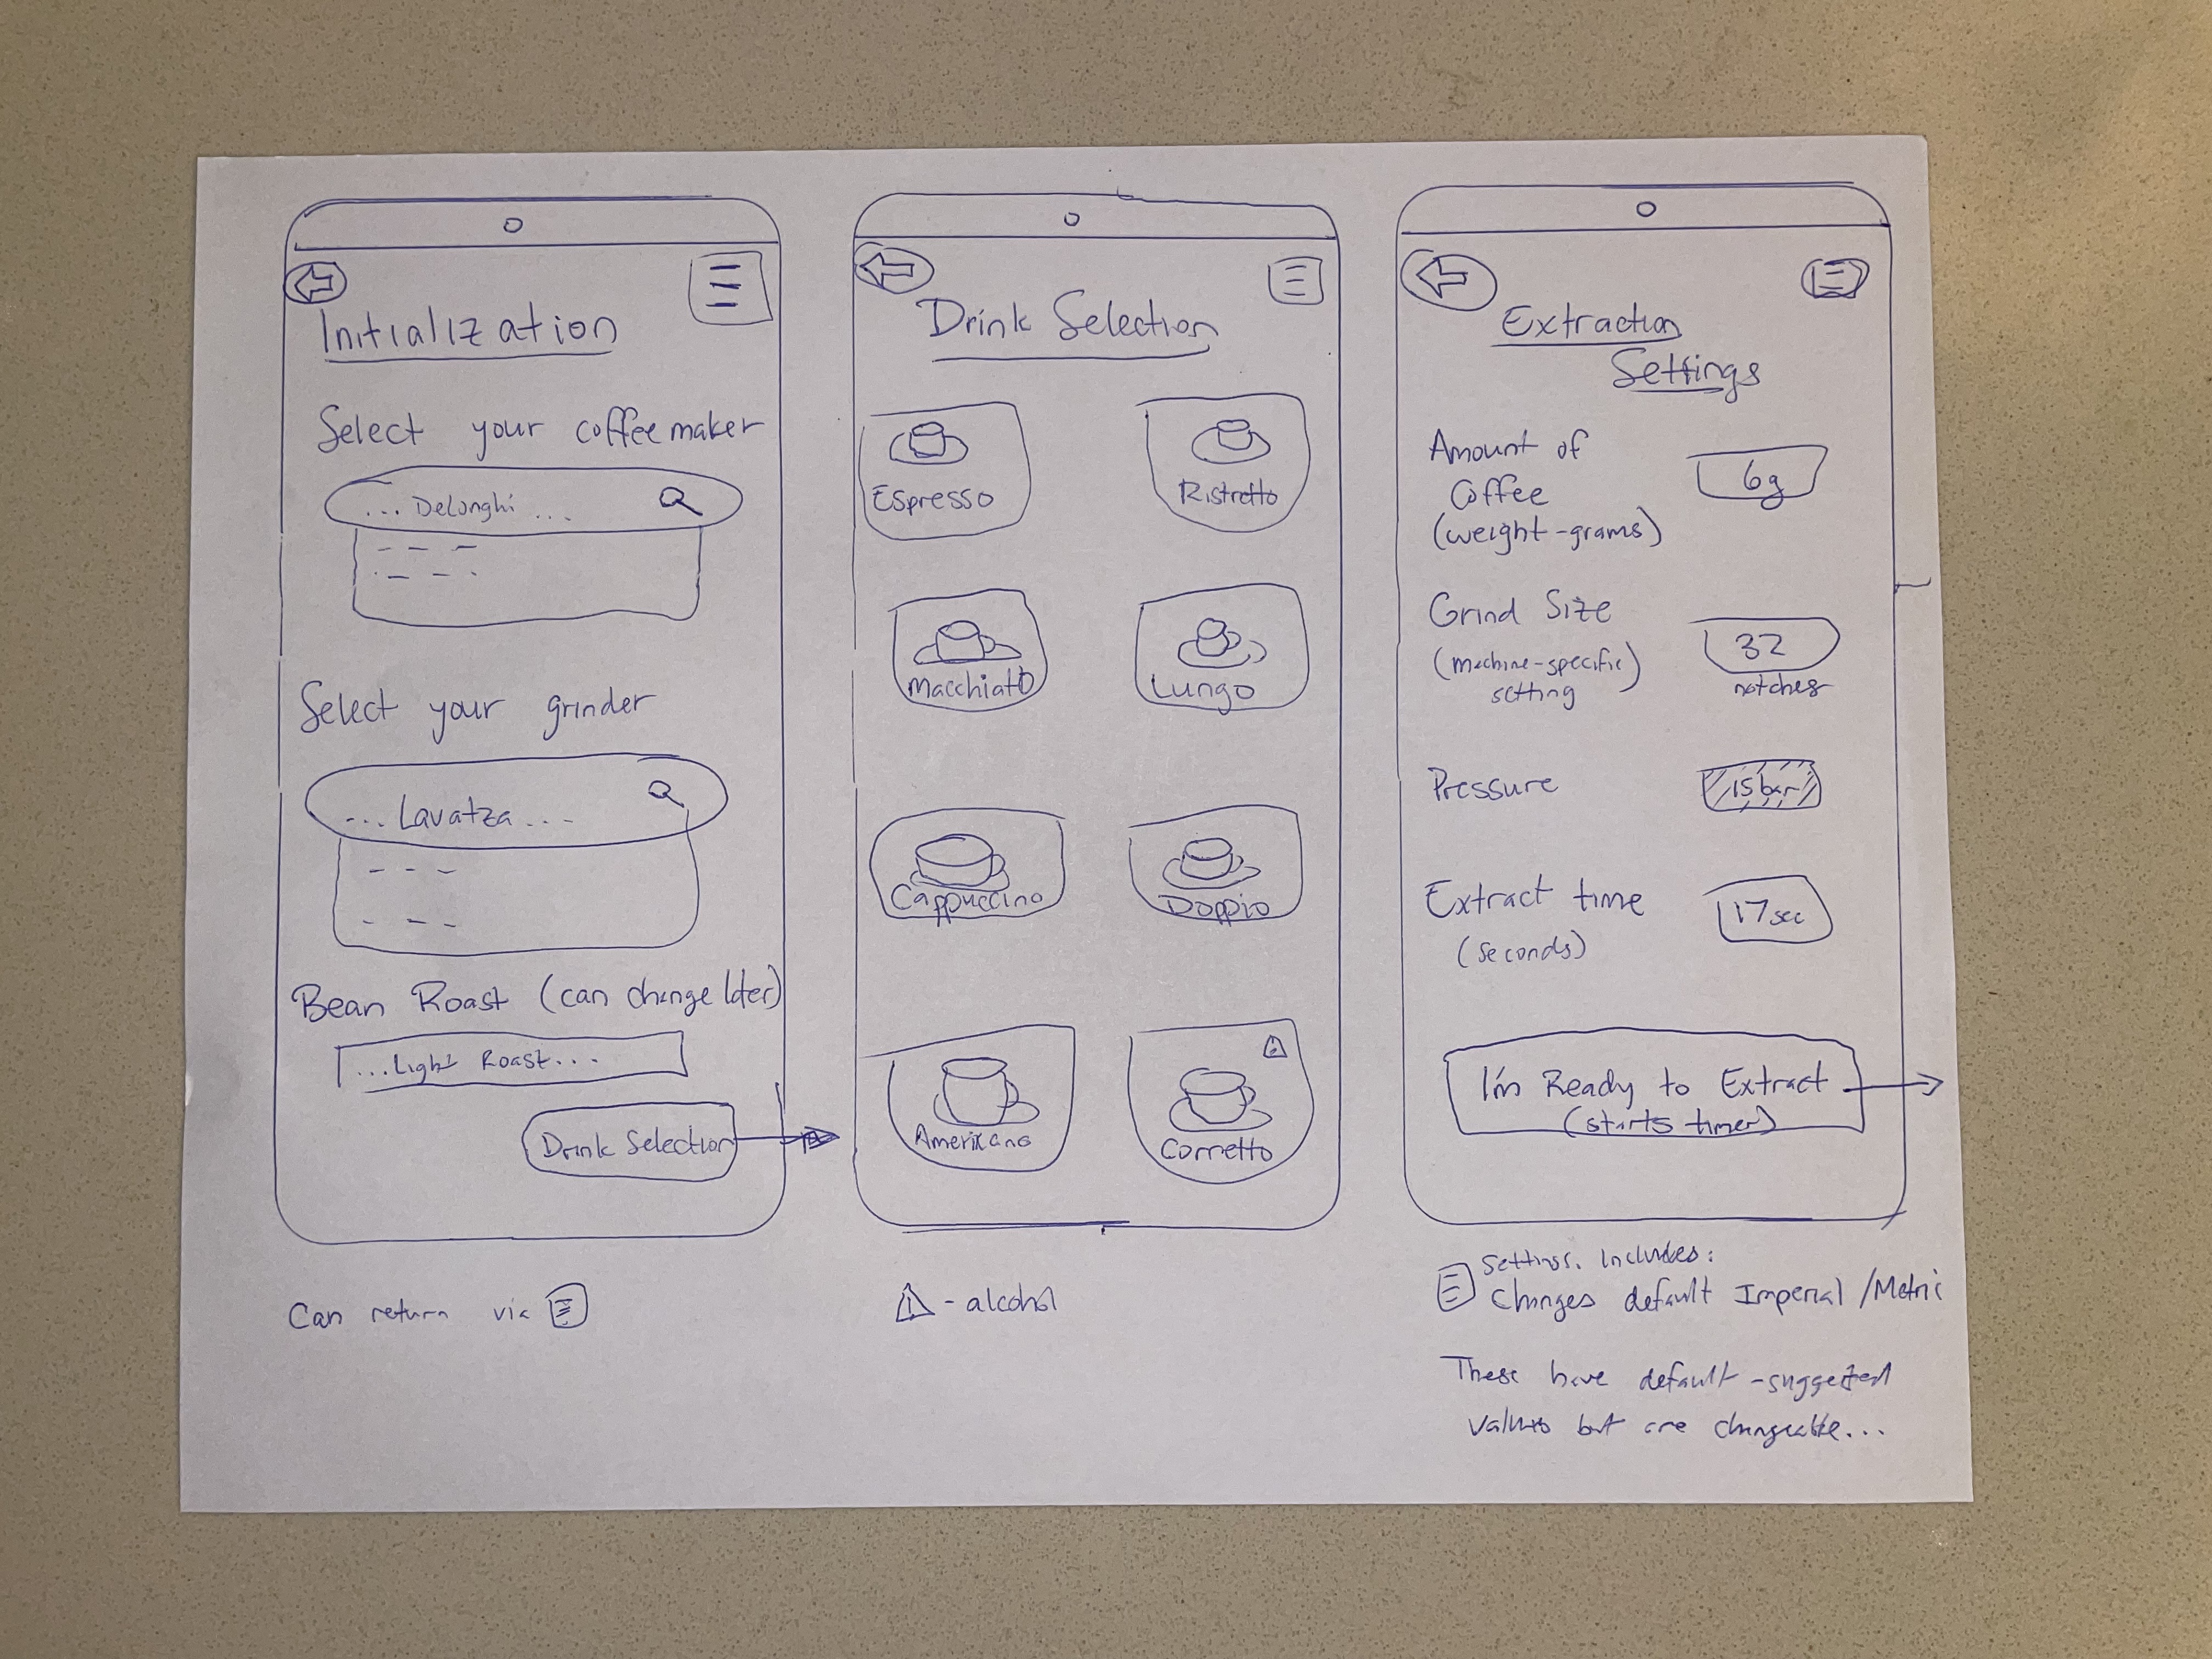 Initialization
Select your coffee maker
... Delonghi ...
Select your grinder
... Lavatza ...
Bean Roast (can change later)
...Light Roast...
Drink Selection
Can return via
Drink Selection
Espresso
Ristretto
Macchiato
Lungo
Cappuccino
Doppio
Americano
Corretto
- alcohol
Extraction
Settings
Amount of
Coffee
(weight-grams)
6g
Grind Size
(machine-specific
setting)
32
notches
Pressure
15 bar
Extract time
(seconds)
17 sec
I'm Ready to Extract
(starts timer)
Settings. Includes:
Changes default Imperial /Metric
These have default-suggested
values but are changeable...